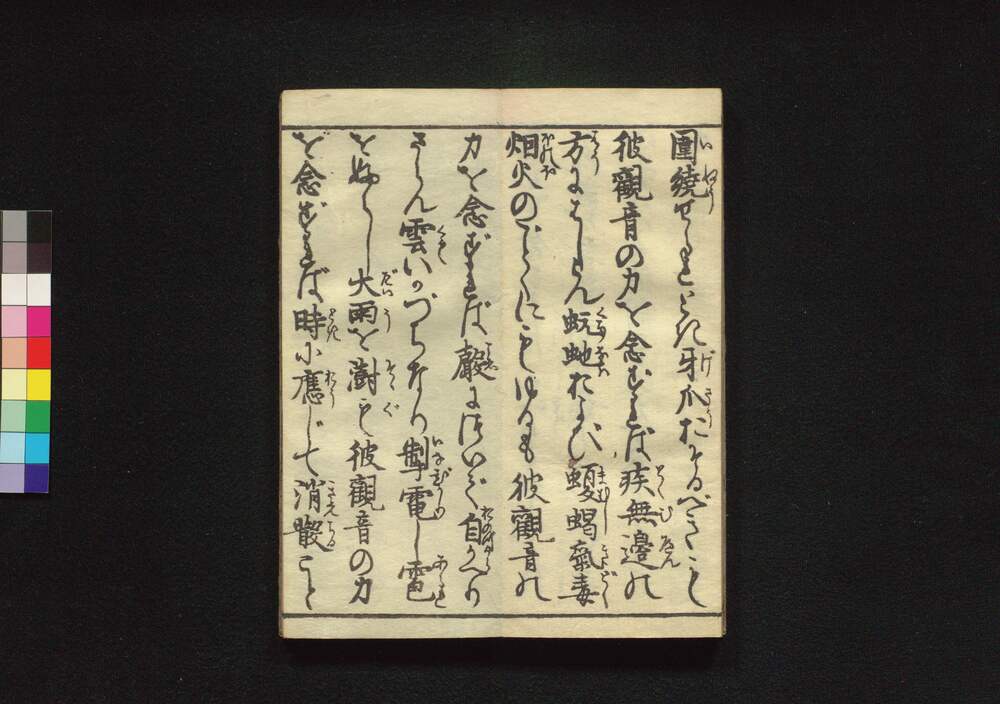 圍繞せられとき牙爪おそるべきにも
彼觀音の力を念ずれば疾無邊の
方にはしらん蚖虵および蝮蝎氣毒
烟火のごとくにもゆるも彼觀音の
力を念ずれば聲についで自かへり
さらん雲いかづちなり掣電し雹
をふらし大雨を澍も彼觀音の力
を念ずれば時に應じて消散こと